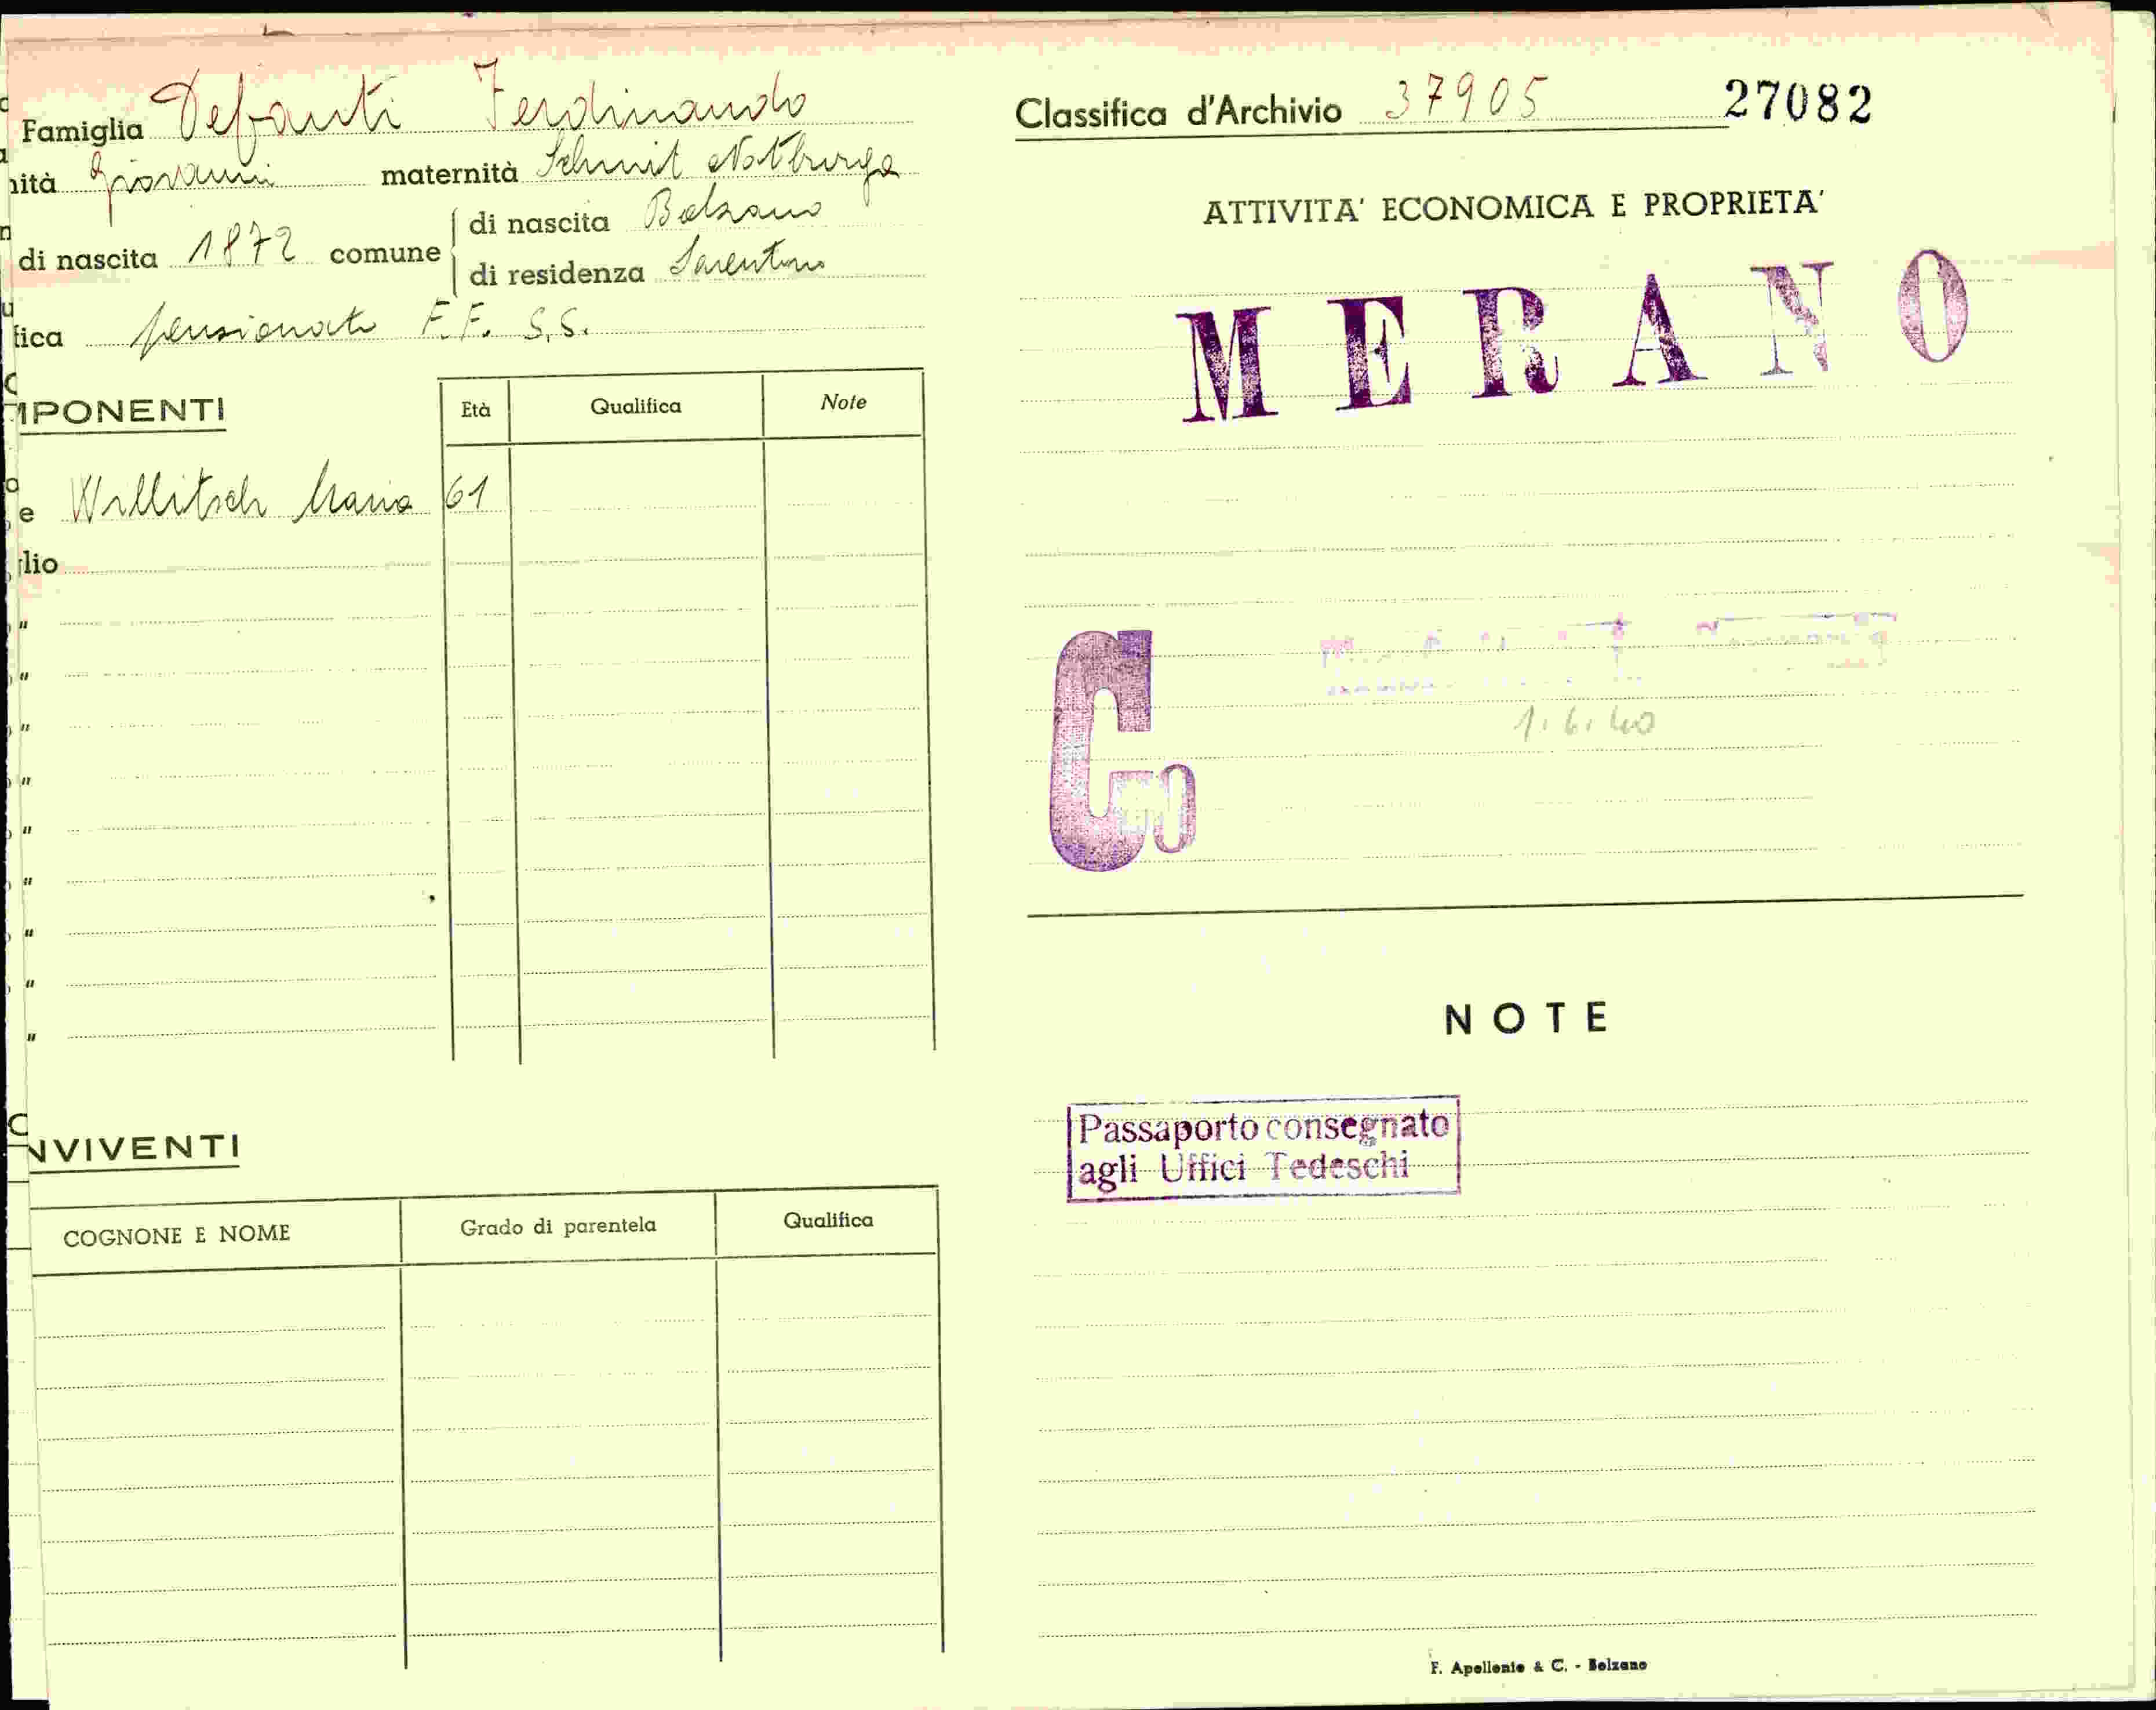 Famiglia Defanti Ferdinando
nità Giovanni maternità Schmit Notburga
di nascita 1872 comune di nascita Bolzano
di residenza Sarentino
fica pensionato F.F. S.S.
MPONENTI
Età Qualifica Note
e Willitsch Maria 61
lio
"
"
"
"
"
"
"
"
"
NVIVENTI
COGNONE E NOME Grado di parentela Qualifica
Classifica d'Archivio 37905 27082
ATTIVITA' ECONOMICA E PROPRIETA'
MERANO
Co
1.6.40
NOTE
Passaporto consegnato
agli Uffici Tedeschi
F. Apollonio & C. - Bolzano